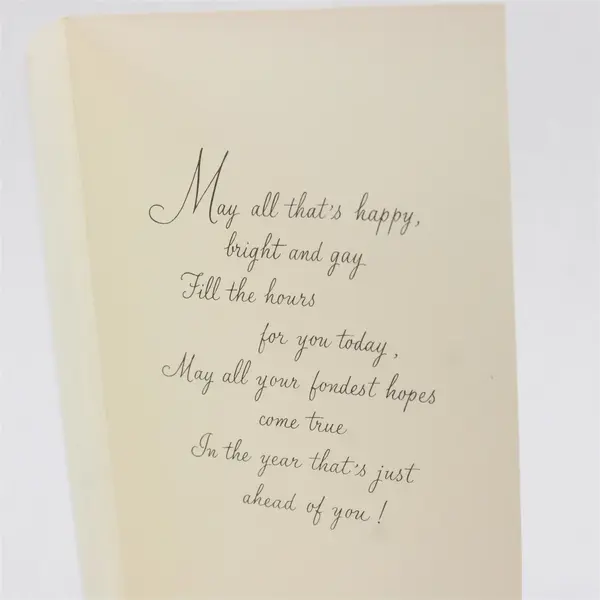 May all that's happy,
bright and gay
Fill the hours
for you today,
May all your fondest hopes
come true
In the year that's just
ahead of you!